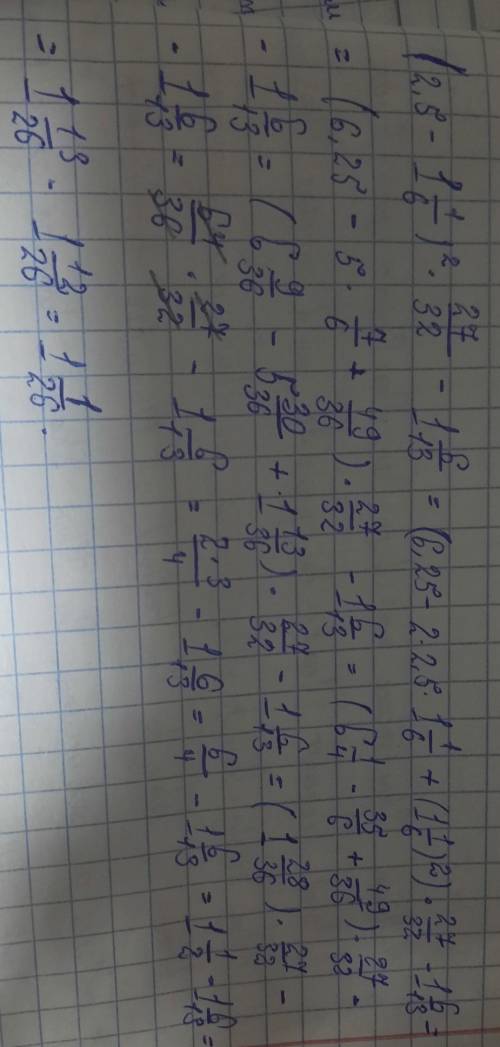 (2,5 - 1 1/6)² · 27/32 - 1 6/13 = (6,25 - 2·2,5·1 1/6 + (1 1/6)²) · 27/32 - 1 6/13 =
= (6,25 - 5 · 7/6 + 49/36) · 27/32 - 1 6/13 = (6 1/4 - 35/6 + 49/36) · 27/32 -
- 1 6/13 = (6 9/36 - 5 30/36 + 1 13/36) · 27/32 - 1 6/13 = (1 28/36) · 27/32 -
- 1 6/13 = 64/36 · 27/32 - 1 6/13 = 2·3/4 - 1 6/13 = 6/4 - 1 6/13 = 1 1/2 - 1 6/13 =
= 1 13/26 - 1 12/26 = 1/26.